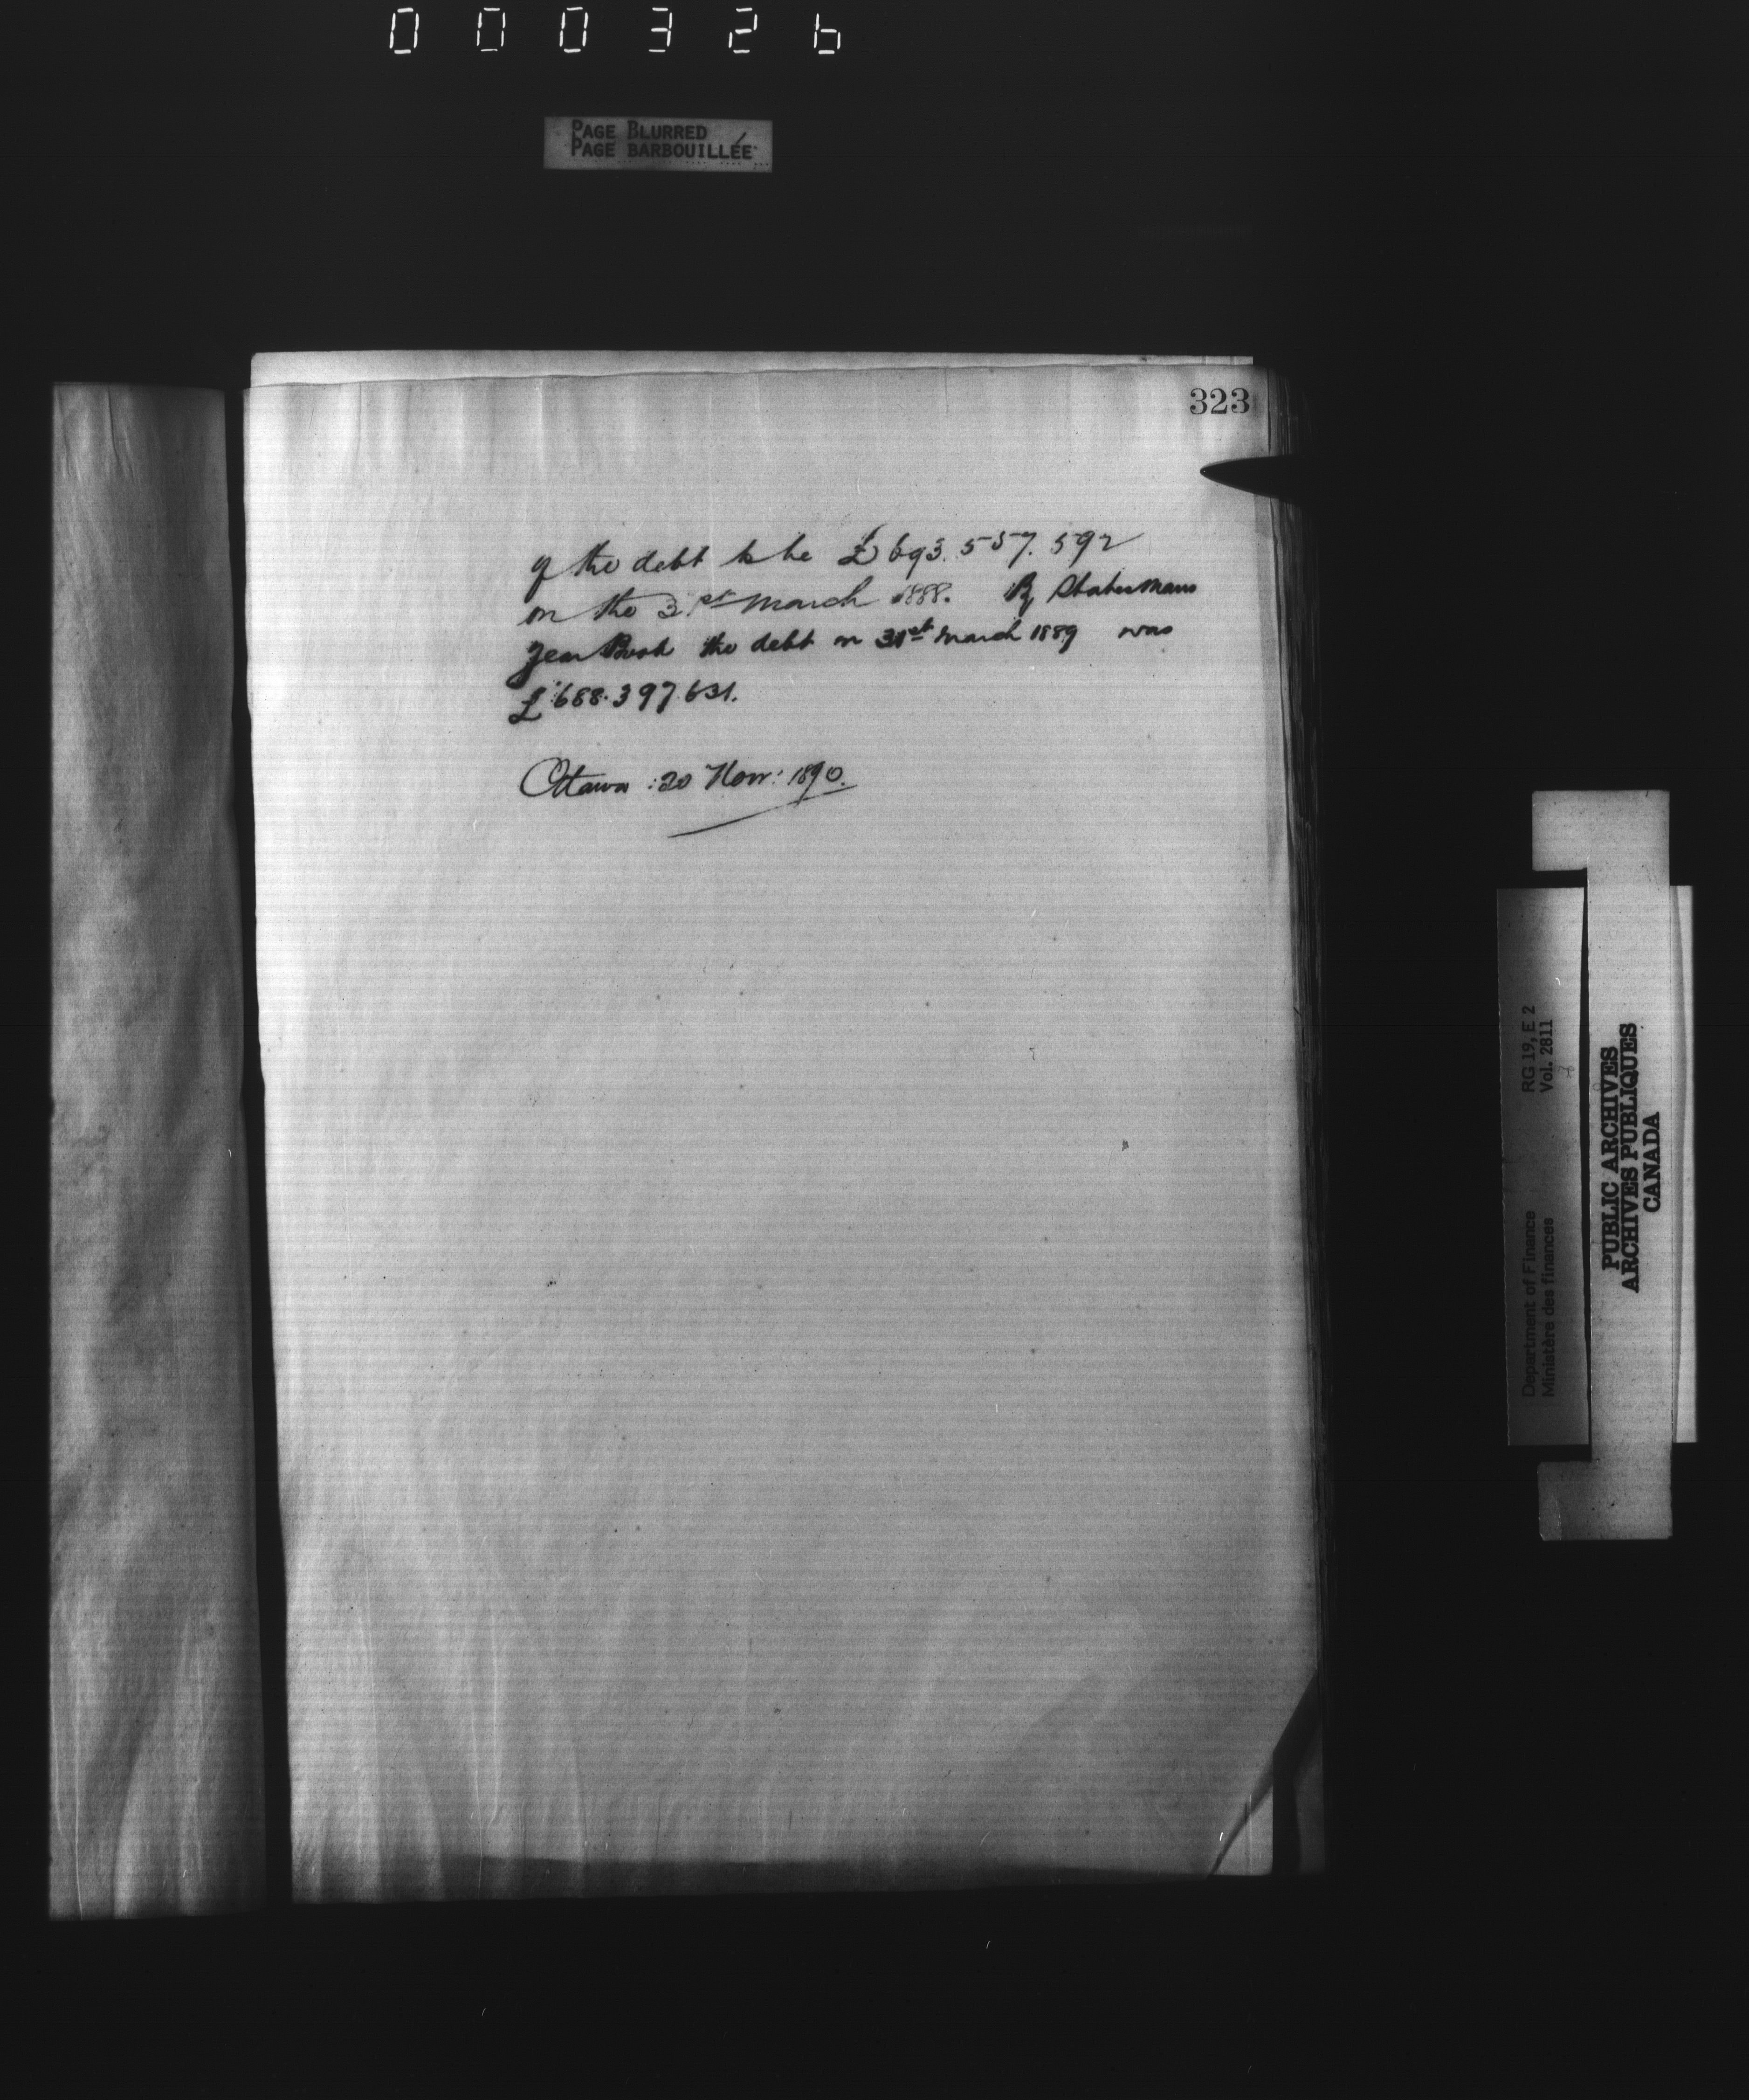 000326
PAGE BLURRED
PAGE BARBOUILLÉE
323
of the debt to be £693.557.592
on the 31st March 1888. By Statesmans
Year Book the debt on 31st March 1889 was
£688.397.631.
Ottawa: 20 Novr: 1890.
RG 19, E 2
Vol. 2811
Department of Finance
Ministère des finances
PUBLIC ARCHIVES
ARCHIVES PUBLIQUES
CANADA